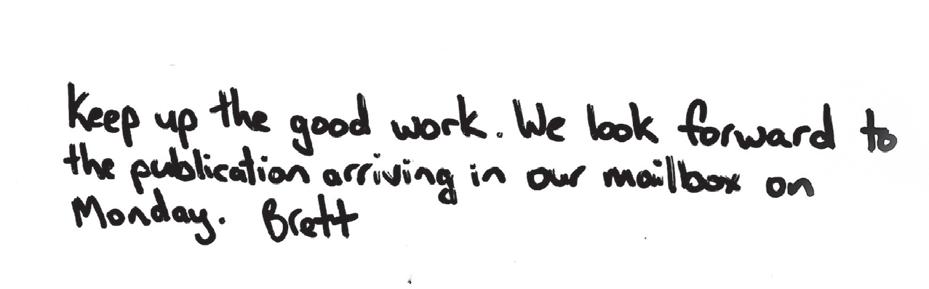 Keep up the good work. We look forward to
the publication arriving in our mailbox on
Monday. Brett